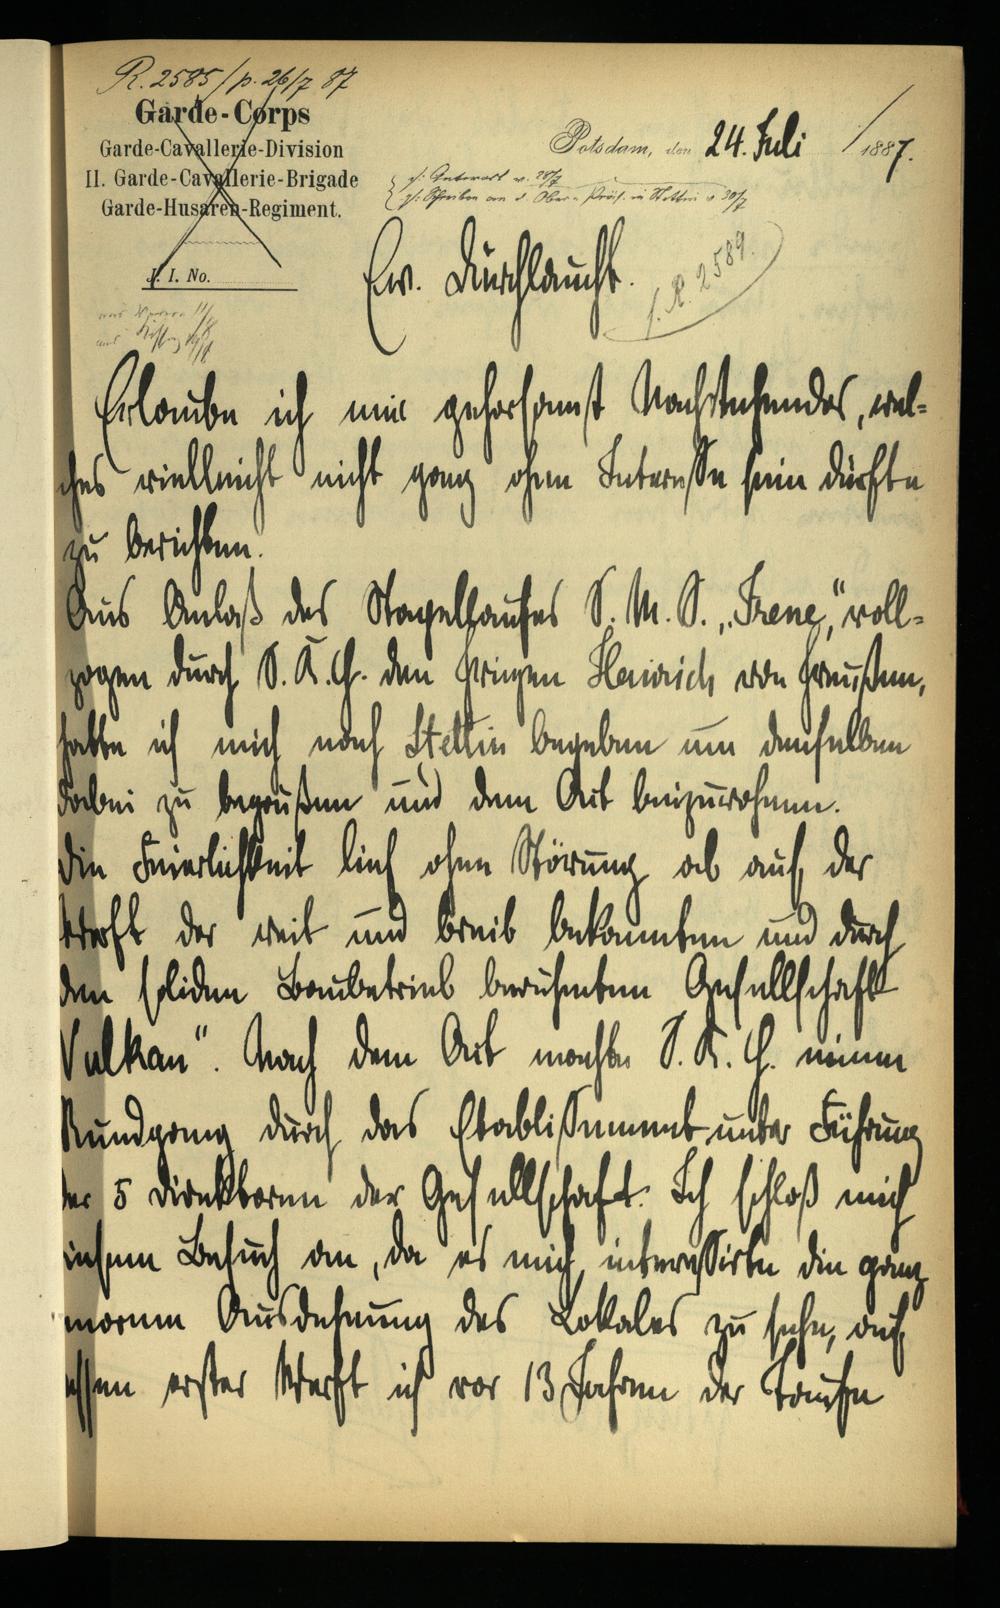 R. 2585/p. 26/7 87
Garde-Corps
Garde-Cavallerie-Division
II. Garde-Cavallerie-Brigade
Garde-Husaren-Regiment.
J. I. No.
Potsdam, den 24. Juli 1887.
Antwort v. 28/7
Schreiben an d. Ober-Präs. in Stettin v 30/7
J. R. 2589.
Ew. Durchlaucht.
Erlaube ich mir gehorsamst Nachstehendes, wel-
ches vielleicht nicht ganz ohne Interesse sein dürfte
zu berichten.
Aus Anlaß des Stapellaufes S. M. S. „Irene", voll-
zogen durch S. K. H. den Prinzen Heinrich von Preußen,
hatte ich mich nach Stettin begeben um denselben
dabei zu begrüßen und dem Act beizuwohnen.
Die Feierlichkeit lief ohne Störung ab auf der
Werft der weit und breit bekannten und durch
den soliden Baubetrieb berühmten Gesellschaft
Vulkan". Nach dem Act machte S. K. H. einen
Rundgang durch das Etablissement unter Führung
der 5 Direktoren der Gesellschaft. Ich schloß mich
iesem Besuch an, da es mich interessirte die ganz
enormen Ausdehnung des Lokales zu sehn, auf
essen erster Werft ich vor 13 Jahren der Taufe